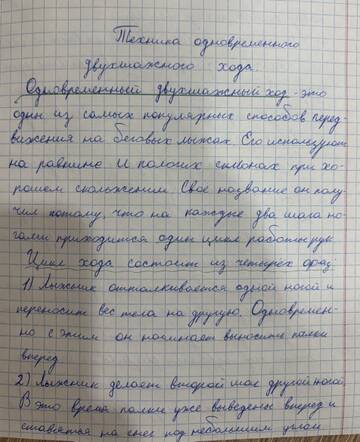 Техника одновременного
двухшажного хода.
Одновременный двухшажный ход - это
один из самых популярных способов перед
вижения на беговых лыжах. Его используют
на равнине и пологих склонах при хо-
рошем скольжении. Свое название он полу
чил потому, что на каждые два шага но-
гами приходится один цикл работы рук
Цикл хода состоит из четырех фаз:
1) Лыжник отталкивается одной ногой и
переносит вес тела на другую. Одновремен-
но с этим он начинает выносить палки
вперед
2) Лыжник делает второй шаг другой ногой.
В это время палки уже выведены вперед и
ставятся на снег под небольшим углом